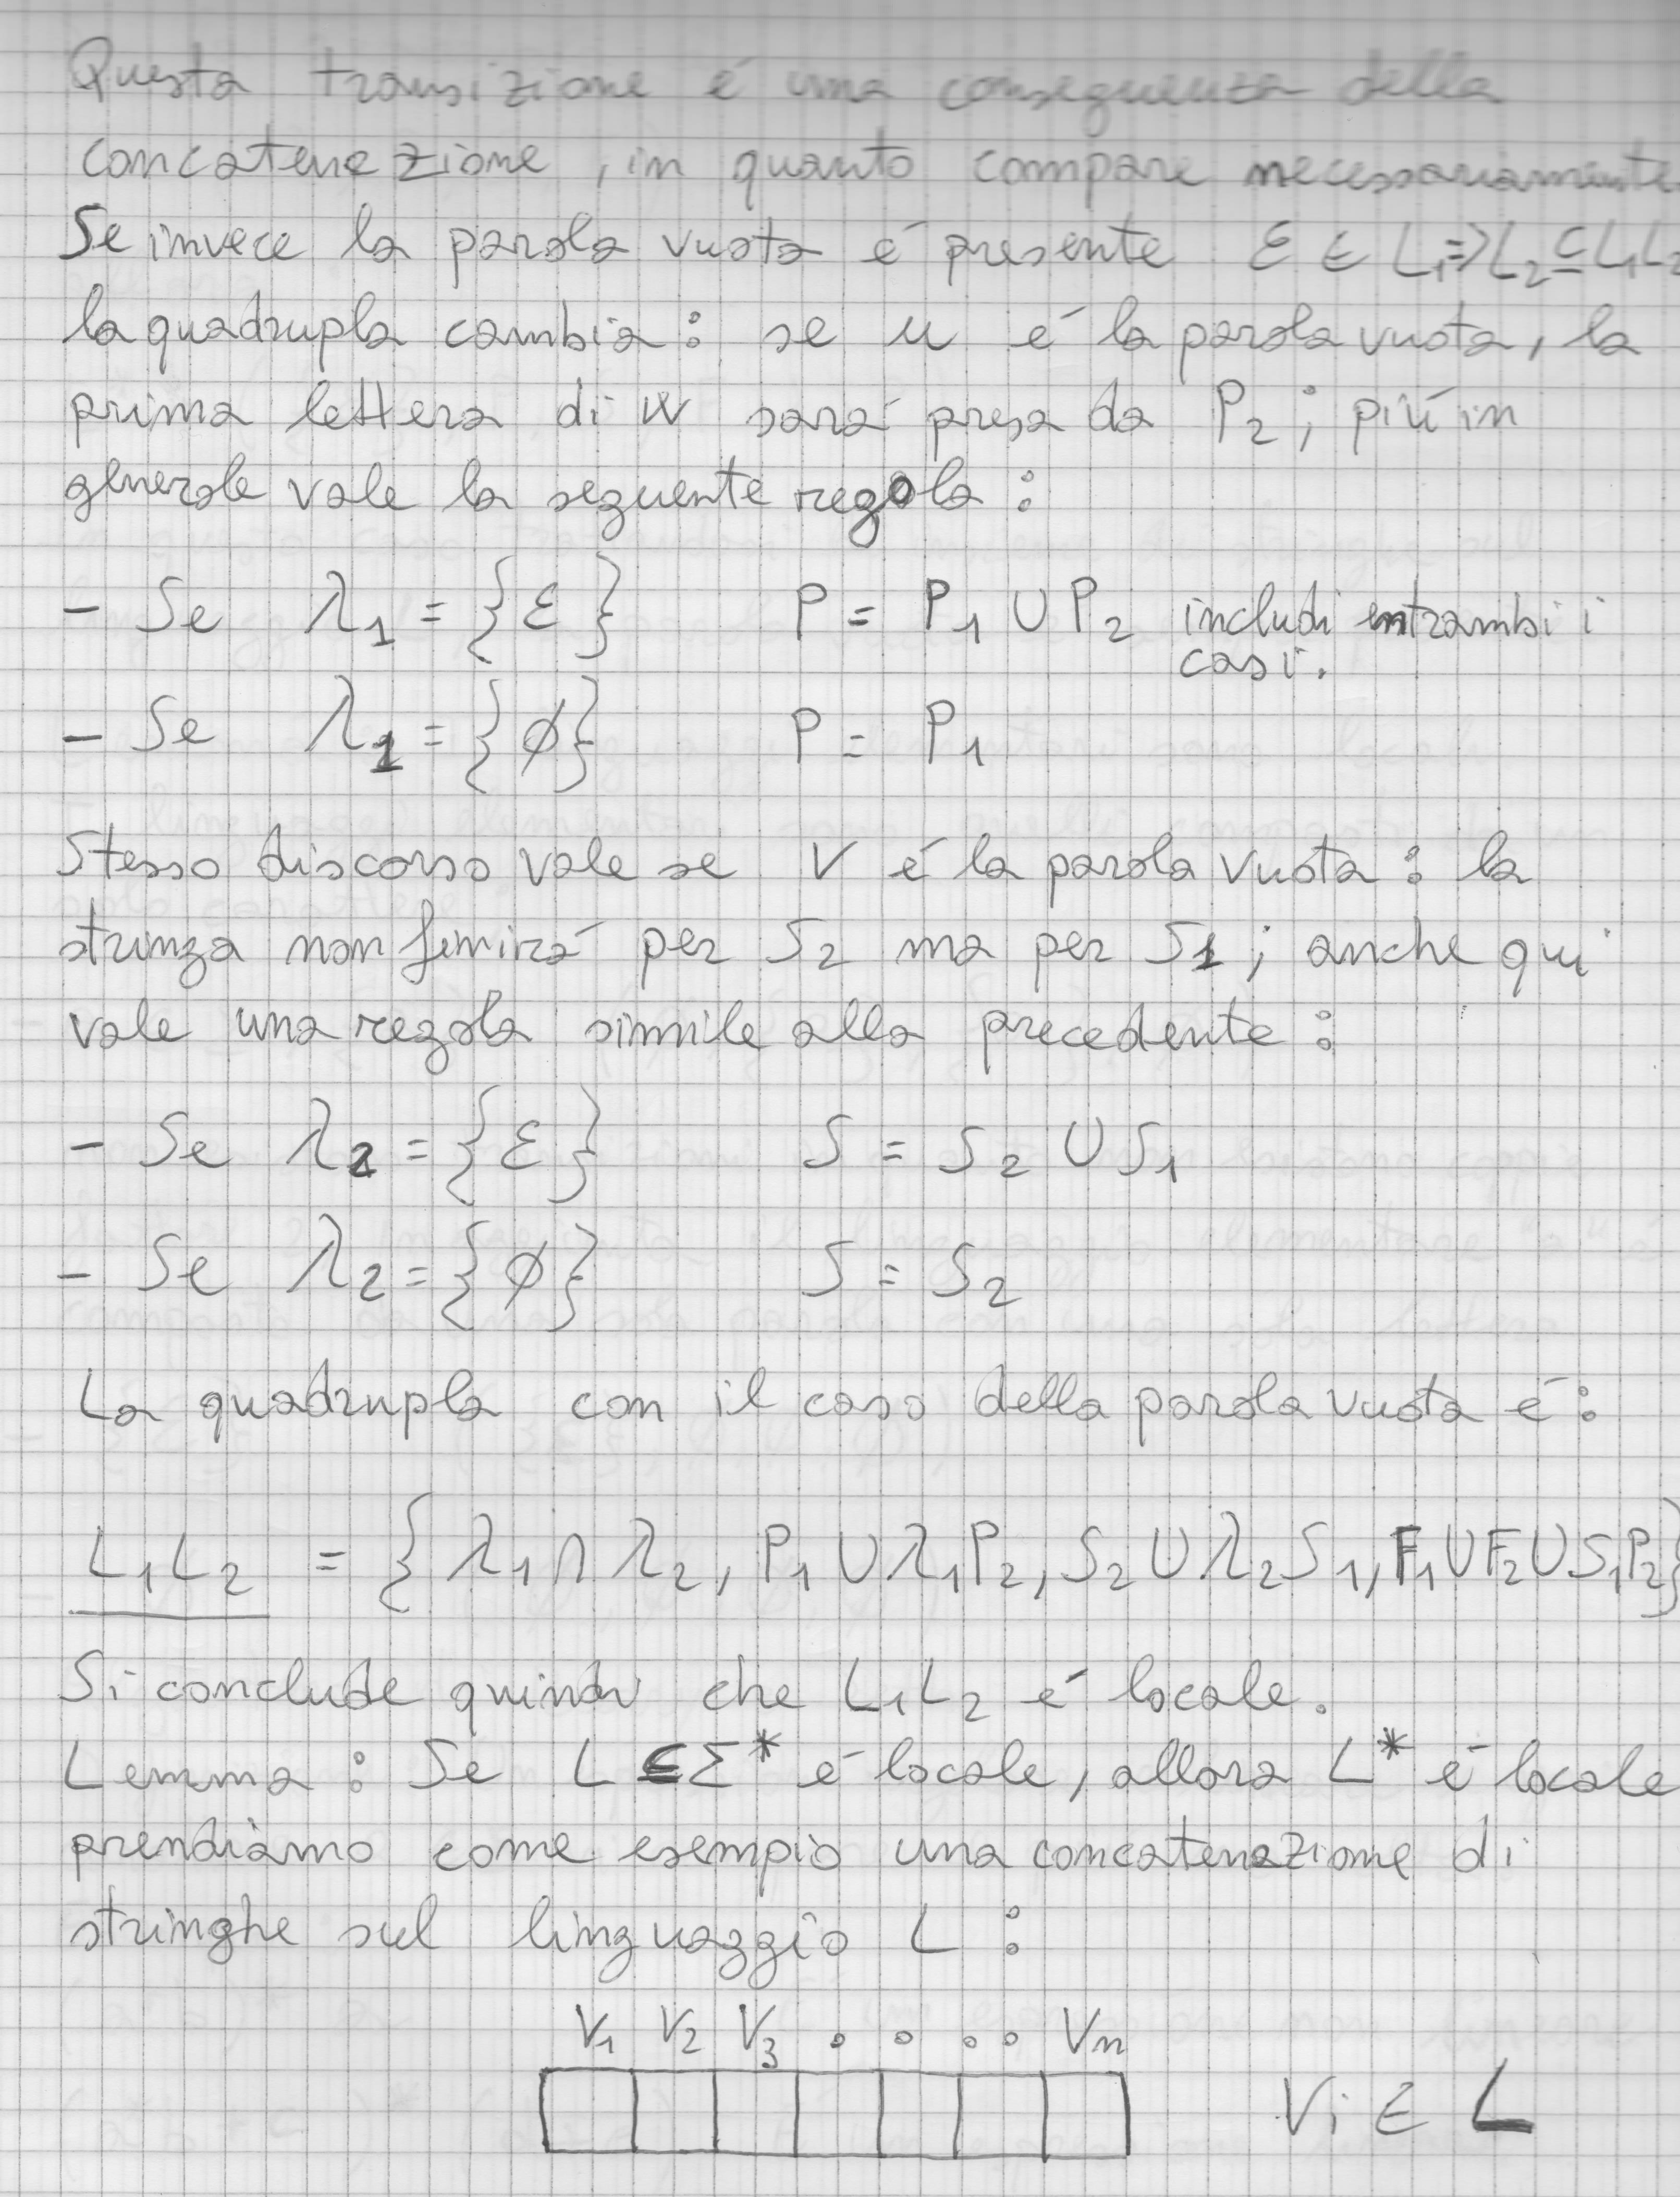 Questa transizione é una conseguenza della
concatenazione, in quanto compare necessariamente.
Se invece la parola vuota é presente ε ∈ L₁=>L₂⊆L₁L₂
la quadrupla cambia: se u é la parola vuota, la
prima lettera di w sará presa da P₂; piú in
generale vale la seguente regola:
- Se λ₁ = {ε} P = P₁ ∪ P₂ includi entrambi i
casi.
- Se λ₁ = {ϕ} P = P₁
Stesso discorso vale se v é la parola vuota: la
stringa non finirá per S₂ ma per S₁; anche qui
vale una regola simile alla precedente:
- Se λ₂ = {ε} S = S₂ ∪ S₁
- Se λ₂ = {ϕ} S = S₂
La quadrupla con il caso della parola vuota é:
L₁L₂ = {λ₁∩λ₂, P₁∪λ₁P₂, S₂∪λ₂S₁, F₁∪F₂∪S₁P₂}
Si conclude quindi che L₁L₂ é locale.
Lemma: Se L⊆Σ* é locale, allora L* é locale
prendiamo come esempio una concatenazione di
stringhe sul linguaggio L:
V₁ V₂ V₃ .... Vn
Vi ∈ L